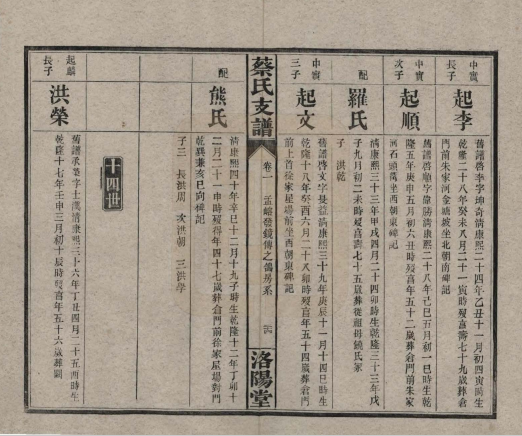 中實
長子
起李
舊譜啓李字坤奇清康熙二十四年乙丑十一月初四寅時生
乾隆二十八年癸未八月二十一寅時歿喜壽七十九歲葬倉
門前朱家河金塘坡坐北朝南碑記
中實
次子
起順
舊譜啓順字偉勝清康熙二十八年己巳五月初一巳時生乾
隆五年庚申五月初六丑時歿喜年五十二歲葬倉門前朱家
河石頭坐西朝東碑記
配
羅氏
清康熙三十三年甲戌四月二十四卯時生乾隆三十三年戊
子九月初二未時歿喜壽七十五歲葬從祖母饒氏冢
子 洪乾
中實
三子
起文
舊譜啓文字長益清康熙三十九年庚辰十一月十四巳時生
乾隆十八年癸酉六月二十八卯時歿喜年五十四歲葬倉門
前上首徐家屋場前坐西朝東碑記
蔡氏支譜
卷二
孟峪發鏡傳之
房系
洛陽堂
配
熊氏
清康熙四十年辛巳十二月十九子時生乾隆十二年丁卯十
二月二十一申時歿得年四十七歲葬倉門前徐家屋場對門
乾巽兼亥巳向碑記
子三 長洪周 次洪朝 三洪學
十四世
起麟
長子
洪榮
舊譜承榮字士清康熙三十六年丁丑四月二十五酉時生
乾隆十七年壬申三月初十辰時歿喜年五十六歲葬